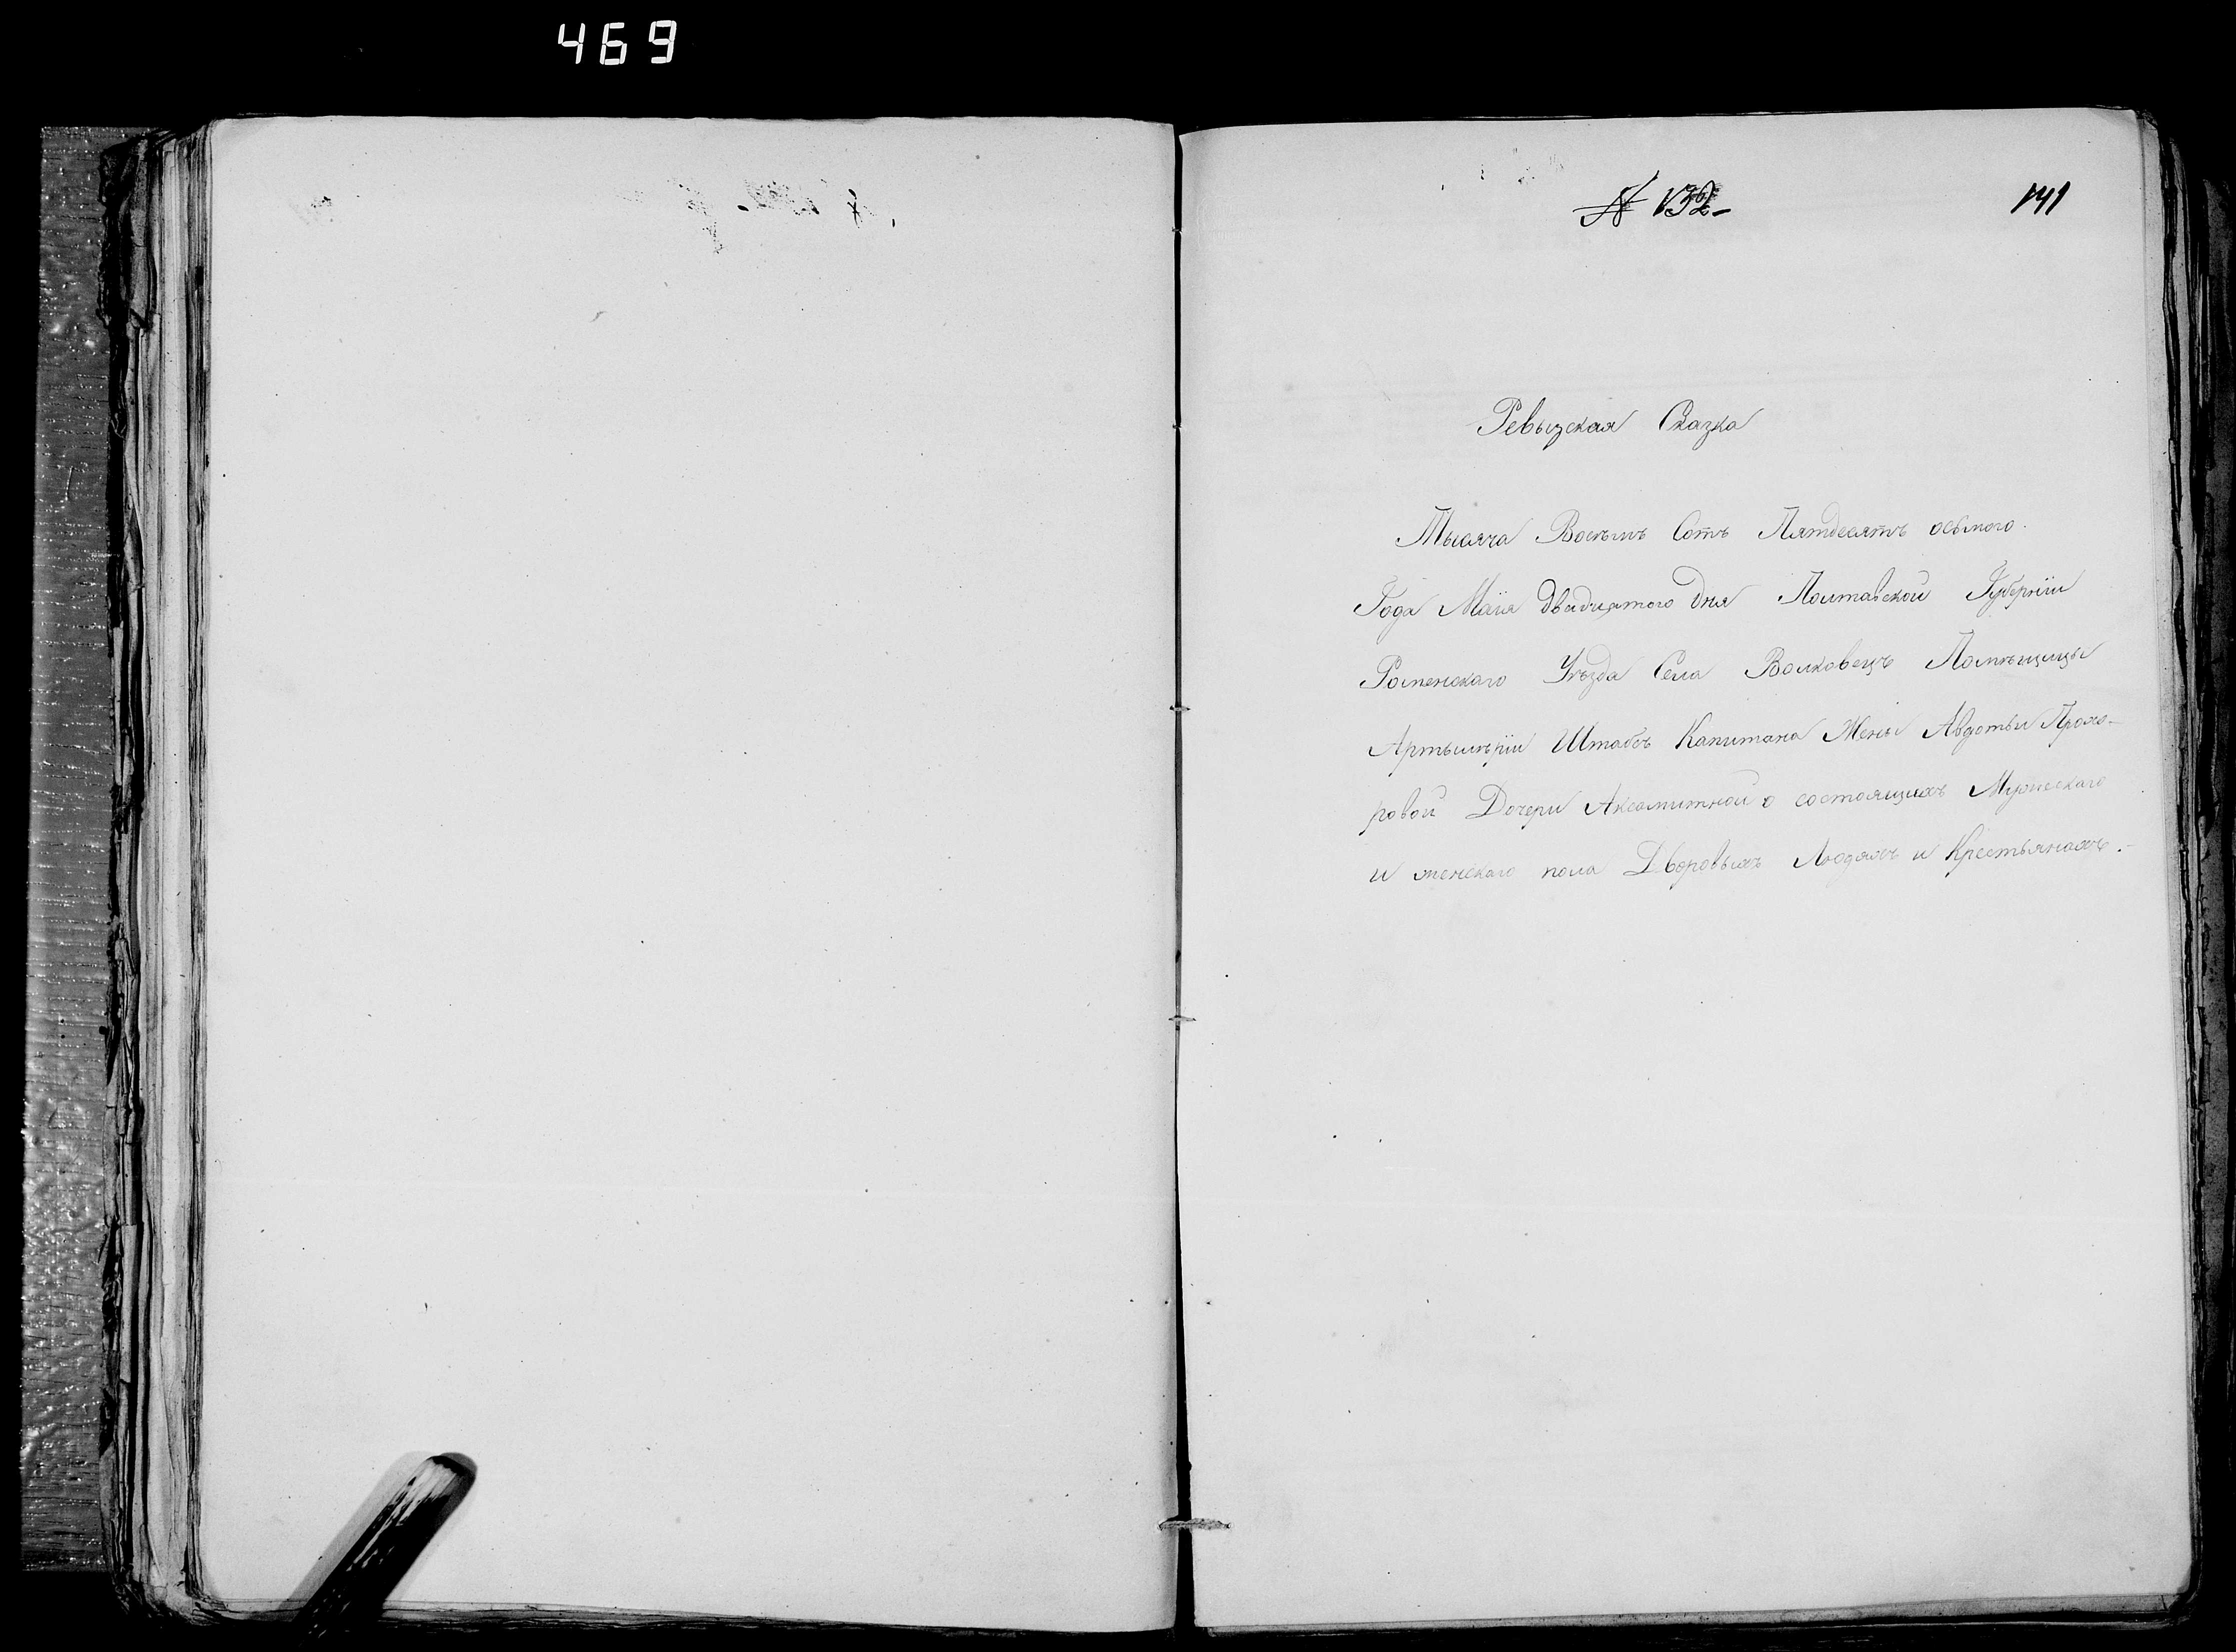 469
№ 132-
141
Ревызская Сказка
Тысяча Восемъ Сотъ Пятдесятъ осьмого
Года Маія двадцятого дня Полтавской Губерніи
Роменскаго Уѣзда Села Волковецъ Помѣщицы
Артылѣріи Штабсъ Капитана Жены Авдотьи Прохо-
ровой Дочери Аксамитной о состоящихъ Мужескаго
и женскаго пола Дворовыхъ Людяхъ и Крестьянахъ.-